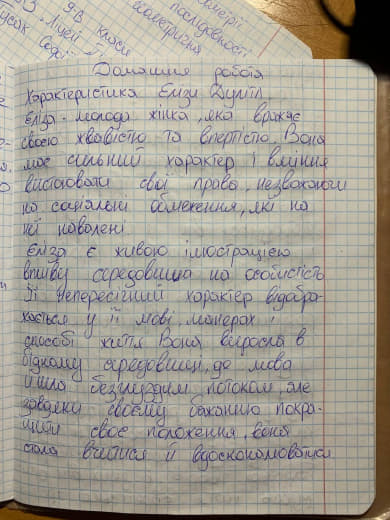 9-В класи
Ліцей
послідовності
геометрична
Домашня робота
Характеристика Елізи Дулітл.
Еліза - молода жінка, яка вражає
своєю жвавістю та впертістю. Вона
має сильний характер і вміння
вистоювати свої права, незважаючи
на соціальні обмеження, які на
неї наволені.
Еліза є живою ілюстрацією
впливу середовища на особистість
Її непересічний характер відобра-
жається у її мові, манерах і
способі життя. Вона виросла в
бідному середовищі, де мова
йшла безглуздим потоком, але
завдяки своєму бажанню покра-
щити своє положення, вона
стала вчитися й вдосконалюватися